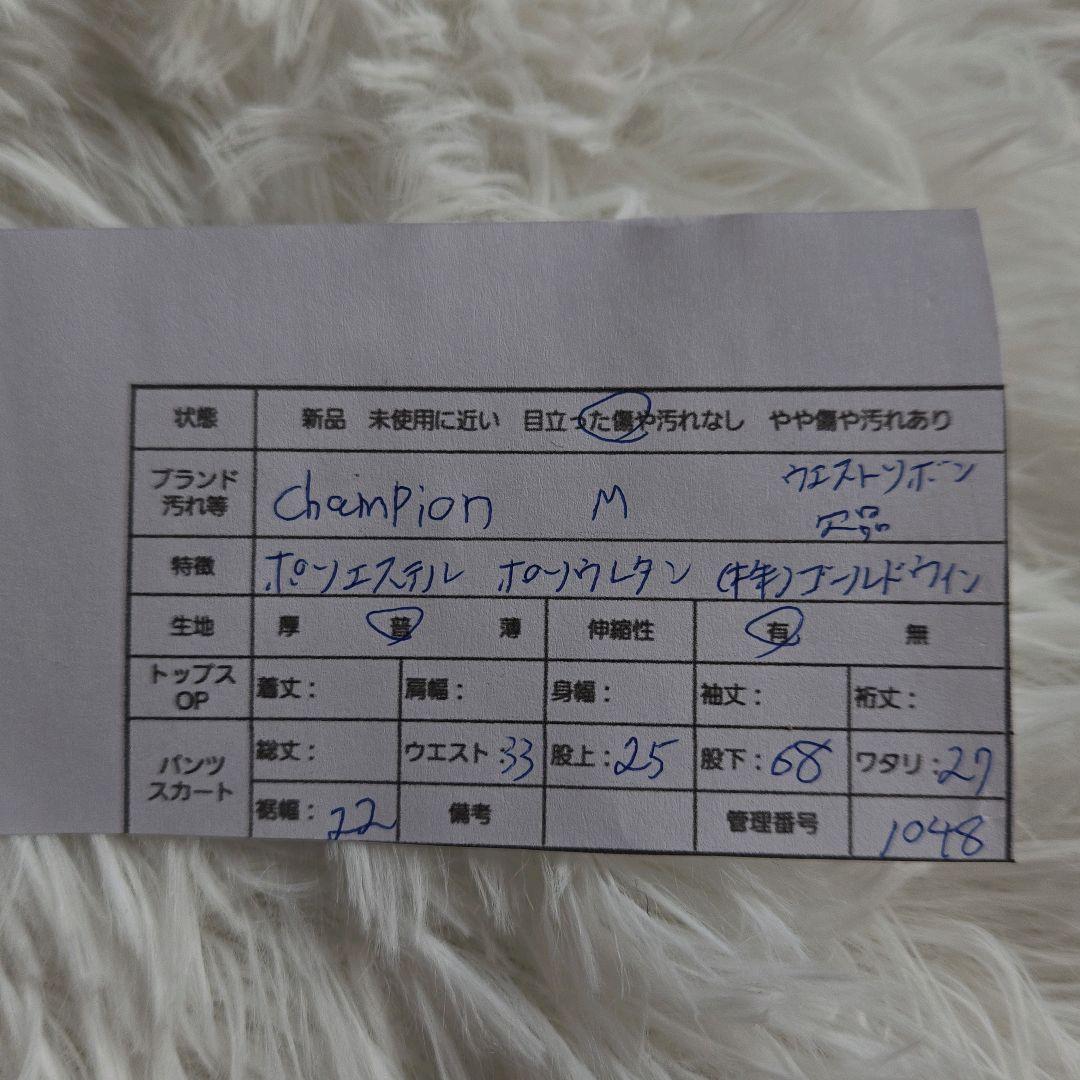 状態 新品 未使用に近い 目立った傷や汚れなし やや傷や汚れあり
ブランド ウエストリボン
汚れ等 Champion M 欠品
特徴 ポリエステル ポリウレタン (株)ゴールドウイン
生地 厚 普 薄 伸縮性 有 無
トップス
OP 着丈: 肩幅: 身幅: 袖丈: 裄丈:
パンツ
スカート 総丈: ウエスト:33 股上:25 股下:68 ワタリ:27
裾幅:22 備考 管理番号 1048